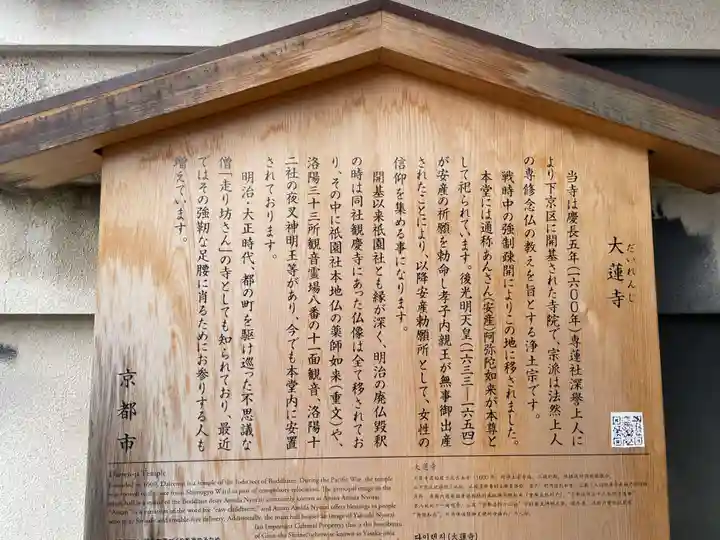 大蓮寺
だいれんじ
当寺は慶長五年(一六〇〇年)専蓮社深誉上人に
より下京区に開基された寺院で、宗派は法然上人
の専修念仏の教えを旨とする浄土宗です。
戦時中の強制疎開によりこの地に移されました。
本堂には通称あんさん(安産)阿弥陀如来が本尊と
して祀られています。後光明天皇(一六三三―一六五四)
が安産の祈願を勅命し孝子内親王が無事御出産
されたことにより、以降安産勅願所として、女性の
信仰を集める事になります。
開基以来祇園社とも縁が深く、明治の廃仏毀釈
の時は同社観慶寺にあった仏像は全て移されてお
り、その中に祇園社本地仏の薬師如来(重文)や、
洛陽三十三所観音霊場八番の十一面観音、洛陽十
二社の夜叉神明王等があり、今でも本堂内に安置
されております。
明治・大正時代、都の町を駆け巡った不思議な
僧「走り坊さん」の寺としても知られており、最近
ではその強靭な足腰に肖るためにお参りする人も
増えています。
京都市
Dairen-ji Temple
大莲寺
다이렌지 (大蓮寺)